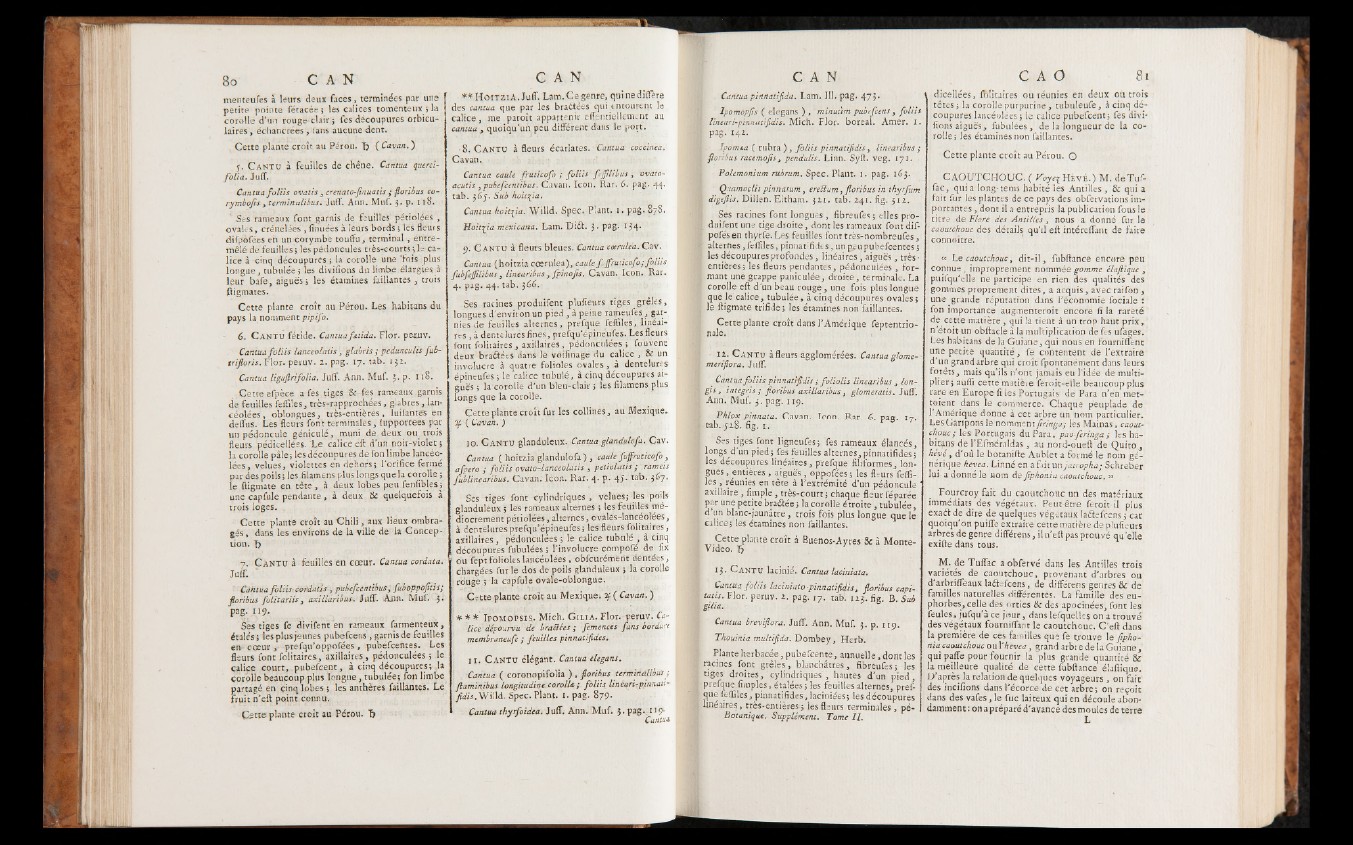 80 C A N
menteuses à leurs deux faces, terminées par une
petite pointe sétacée; les calices tomenteux; la
corolle d'un rouge-clair; ses découpures orbicu-
laires, échancrées, sans aucune dent.
Cette plante croît au Pérou. ♄ (Cavan.)
5. CANTU à feuilles de chêne. Cantua querci-
folia. Juss.
Cantua foliis ovatis, crenato-sinuatis; floribus co-
rymbosis, terminalibus. Juss. Ann. Mus. 3. p. 118.
Ses rameaux sont garnis de feuilles pétiolées,
ovales, crénelées, sinuées à leurs bords; les fleurs
disposées en un corymbe touffu, terminal, entre-
mêlé de feuilles; les pédoncules très-courts; le ca-
lice à cinq découpures; la corolle une fois plus
longue, tubulée; les divisions du limbe élargies à
leur base, aiguës; les étamines saillantes, trois
stigmates.
Cette plante croît au Pérou. Les habitans du
pays la nomment pipiso.
6. CANTU fétide. Cantua fœtida. Flor. peruv.
Cantua foliis lanceolatis, glabris; pedunculis sub-
trifloris. Flor. peruv. 2. pag. 17. tab. 132.
Cantua ligustrifolia. Juss. Ann. Mus. 3. p. 118.
Cette espèce a ses tiges & ses rameaux garnis
de feuilles sessiles, très-rapprochées, glabres, lan-
céolées, oblongues, très-entières, luisantes en
dessus. Les fleurs sont terminales, supportées par
un pédoncule géniculé, muni de deux ou trois
fleurs pédicellées. Le calice est d'un noir-violet;
la corolle pâle; les découpures de son limbe lancéo-
lées, velues, violettes en dehors; l'orifice fermé
par des poils; les filamens plus longs que la corolle;
le stigmate en tête, à deux lobes peu sensibles;
une capsule pendante, à deux & quelquefois à
trois loges.
Cette plante croît au Chili, aux lieux ombra-
gés, dans les environs de la ville de la Concep-
tion. ♄
7. CANTU à feuilles en cœur. Cantua cordata.
Juss.
Cantua foliis cordatis, pubescentibus, suboppositis;
floribus solitariis, axillaribus. Juss. Ann. Mus. 3.
pag. 119.
Ses tiges se divisent en rameaux sarmenteux,
étalés; les plus jeunes pubescens, garnis de feuilles
en cœur, presqu'opposées, pubescentes. Les
fleurs sont solitaires, axillaires, pédonculées; le
calice court, pubescent, à cinq découpures; la
corolle beaucoup plus longue, tubulée; son limbe
partagé en cinq lobes; les anthères saillantes. Le
fruit n'est point connu.
Cette plante croît au Pérou. ♄
C A N
** HOITZIA. Juss. Lam. Ce genre, qui ne diffère
des cantua que par les bractées qui entourent le
calice, me paroît appartenir essentiellement au
cantua, quoiqu'un peu différent dans le port.
8. CANTU à fleurs écarlates. Cantua coccinea.
Cavan.
Cantua caule fruticoso; foliis sessilibus, ovato-
acutis, pubescentibus. Cavan. Icon. Rar. 6. pag. 44.
tab. 365. Sub hoitzia.
Cantua hoitzia. Willd. Spec. Plant. 1. pag. 878.
Hoitzia mexicana. Lam. Dict. 3. pag. 134.
9. CANTU à fleurs bleues. Cantua cœrulea. Cav.
Cantua (hoitzia cœrulea), caule suffruticoso; foliis
subsessilibus, linearibus, spinosis. Cavan. Icon. Rar.
4. pag. 44. tab. 366.
Ses racines produisent plusieurs tiges grêles,
longues d'environ un pied, à peine rameuses, gar-
nies de feuilles alternes, presque sessiles, linéai-
res, à dentelures fines, presqu'épineuses. Les fleurs
sont solitaires, axillaires, pédonculées; souvent
deux bractées dans le voisinage du calice, & un
involucre à quatre folioles ovales, à dentelures
épineuses; le calice tubulé, à cinq découpures ai-
guës; la corolle d'un bleu-clair; les filamens plus
longs que la corolle.
Cette plante croît sur les collines, au Mexique.
♃ (Cavan.)
10. CANTU glanduleux. Cantua glandulosa. Cav.
Cantua (hoitzia glandulosa), caule suffruticoso,
aspero; foliis ovato-lanceolatis, petiolatis; rameis
sublinearibus. Cavan. Icon. Rar. 4. p. 45. tab. 367.
Ses tiges sont cylindriques, velues; les poils
glanduleux; les rameaux alternes; les feuilles mé-
diocrement pétiolées, alternes, ovales-lancéolées,
à dentelures presqu'épineuses; les fleurs solitaires,
axillaires, pédonculées; le calice tubulé, à cinq
découpures subulées; l'involucre composé de six
ou sept folioles lancéolées, obscurément dentées,
chargées sur le dos de poils glanduleux; la corolle
rouge; la capsule ovale-oblongue.
Cette plante croît au Mexique. ♃ (Cavan.)
*** IPOMOPSIS. Mich. GILIA. Flor. peruv. Ca-
lice dépourvu de bractées; semences sans bordure
membraneuse; feuilles pinnatifides.
11. CANTU élégant. Cantua elegans.
Cantua (coronopifolia), floribus terminalibus;
staminibus longitudine corollæ; foliis lineari-pinnati-
fidis. Willd. Spec. Plant. 1. pag. 879.
Cantua thyrsoidea. Juss. Ann. Mus. 3. pag. 119.
Cantua
C A N
Cantua pinnatifida. Lam. Ill. pag. 473.
Ipomopsis (elegans), minutim pubescens, foliis
lineari-pinnatifidis. Mich. Flor. boreal. Amer. 1.
pag. 142.
Ipomea (rubra), foliis pinnatifidis, linearibus;
floribus racemosis, pendulis. Linn. Syst. veg. 171.
Polemonium rubrum. Spec. Plant. 1. pag. 163.
Quamoclis pinnatum, erectum, floribus in thyrsum
digestis. Dillen. Eltham. 321. tab. 241. fig. 312.
Ses racines sont longues, fibreuses; elles pro-
duisent une tige droite, dont les rameaux sont dis-
posés en thyrse. Les feuilles sont très-nombreuses,
alternes, sessiles, pinnatifides, un peu pubescentes;
les découpures profondes, linéaires, aiguës, très-
entières; les fleurs pendantes, pédonculées, for-
mant une grappe paniculée, droite, terminale. La
corolle est d'un beau rouge, une fois plus longue
que le calice, tubulée, à cinq découpures ovales;
le stigmate trifide; les étamines non saillantes.
Cette plante croît dans l'Amérique septentrio-
nale.
12. CANTU à fleurs agglomérées. Cantua glome-
meriflora. Juss.
Cantua foliis pinnatifidis; foliolis linearibus, lon-
gis, integris; floribus axillaribus, glomeratis. Juss.
Ann. Mus. 3. pag. 119.
Phlox pinnata. Cavan. Icon. Rar. 6. pag. 17.
tab. 528. fig. 1.
Ses tiges sont ligneuses; ses rameaux élancés,
longs d'un pied; ses feuilles alternes, pinnatifides;
les découpures linéaires, presque filiformes, lon-
gues, entières, aiguës, opposées; les fleurs sessi-
les, réunies en tête à l'extrémité d'un pédoncule
axillaire, simple, très-court; chaque fleur séparée
par une petite bractée; la corolle étroite, tubulée,
d'un blanc-jaunâtre, trois fois plus longue que le
calice; les étamines non saillantes.
Cette plante croît à Buenos-Ayres & à Monte-
Video. ♄
13. CANTU lacinié. Cantua laciniata.
Cantua foliis laciniato-pinnatifidis, floribus capi-
tatis. Flor. peruv. 2. pag. 17. tab. 123. fig. B. Sub
gilia.
Cantua breviflora. Juss. Ann. Mus. 3. p. 119.
Thouinia multifida. Dombey, Herb.
Plante herbacée, pubescente, annuelle, dont les
racines sont grêles, blanchâtres, fibreuses; les
tiges droites, cylindriques, hautes d'un pied,
presque simples, étalées; les feuilles alternes, pres-
que sessiles, pinnatifides, laciniées; les découpures
linéaires, très-entières; les fleurs terminales, pé-
Botanique. Supplément. Tome II.
C A O 81
dicellées, solitaires ou réunies en deux ou trois
têtes; la corolle purpurine, tubuleuse, à cinq dé-
coupures lancéolées; le calice pubescent; ses divi-
sions aiguës, subulées, de la longueur de la co-
rolle; les étamines non saillantes.
Cette plante croît au Pérou. ⊙
CAOUTCHOUC. (Voyez HÉVÉ.) M. de Tus-
sac, qui a long-tems habité les Antilles, & qui a
fait sur les plantes de ce pays des observations im-
portantes, dont il a entrepris la publication sous le
titre de Flore des Antilles, nous a donné sur le
caoutchouc des détails qu'il est intéressant de faire
connoître.
« Le caoutchouc, dit-il, substance encore peu
connue, improprement nommée gomme élastique,
puisqu'elle ne participe en rien des qualités des
gommes proprement dites, a acquis, avec raison,
une grande réputation dans l'économie sociale:
son importance augmenteroit encore si la rareté
de cette matière, qui la tient à un trop haut prix,
n'étoit un obstacle à la multiplication de ses usages.
Les habitans de la Guiane, qui nous en fournissent
une petite quantité, se contentent de l'extraire
d'un grand arbre qui croît spontanément dans leurs
forêts, mais qu'ils n'ont jamais eu l'idée de multi-
plier; aussi cette matière seroit-elle beaucoup plus
rare en Europe si les Portugais de Para n'en met-
toient dans le commerce. Chaque peuplade de
l'Amérique donne à cet arbre un nom particulier.
Les Garipons le nomment siringa; les Mainas, caout-
chouc; les Portugais du Para, pao seringa; les ha-
bitans de l'Esméraldas, au nord-ouest de Quito,
hévé, d'où le botaniste Aublet a formé le nom gé-
nérique hevea. Linné en a fait un jatropha; Schreber
lui a donné le nom de siphonia caoutchouc. »
Fourcroy fait du caoutchouc un des matériaux
immédiats des végétaux. Peut-être seroit-il plus
exact de dire de quelques végétaux lactescens; car
quoiqu'on puisse extraire cette matière de plusieurs
arbres de genre différens, il n'est pas prouvé qu'elle
existe dans tous.
M. de Tussac a observé dans les Antilles trois
variétés de caoutchouc, provenant d'arbres ou
d'arbrisseaux lactescens, de différens genres & de
familles naturelles différentes. La famille des eu-
phorbes, celle des orties & des apocinées, sont les
seules, jusqu'à ce jour, dans lesquelles on a trouvé
des végétaux fournissant le caoutchouc. C'est dans
la première de ces familles que se trouve le sipho-
nia caoutchouc ou l'hevea, grand arbre de la Guiane,
qui passe pour fournir la plus grande quantité &
la meilleure qualité de cette substance élastique.
D'après la relation de quelques voyageurs, on fait
des incisions dans l'écorce de cet arbre; on reçoit
dans des vases, le suc laiteux qui en découle abon-
damment: on a préparé d'avance des moules de terre
L